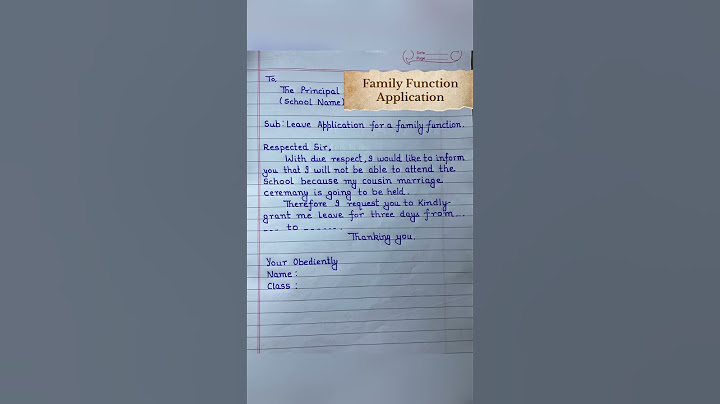 Date
Page
To,
The Principal
(School Name)
Family Function
Application
Sub: Leave Application for a family function.
Respected Sir,
With due respect, I would like to inform
you that I will not be able to attend the
School because my cousin marriage
ceremony is going to be held.
Therefore I request you to Kindly-
grant me Leave for three days from ...
.... to .......
Thanking you.
Your Obediently
Name :
Class :